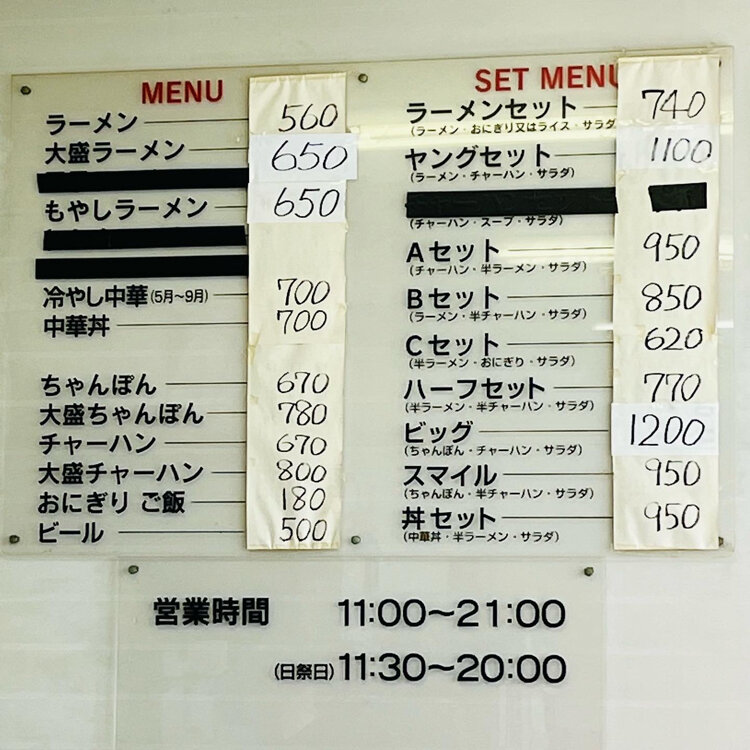 MENU
ラーメン 560
大盛ラーメン 650
もやしラーメン 650
冷やし中華(5月〜9月) 700
中華丼 700
ちゃんぽん 670
大盛ちゃんぽん 780
チャーハン 670
大盛チャーハン 800
おにぎり ご飯 180
ビール 500
SET MENU
ラーメンセット 740
(ラーメン・おにぎり又はライス・サラダ)
ヤングセット 1100
(ラーメン・チャーハン・サラダ)
(チャーハン・スープ・サラダ)
Aセット 950
(チャーハン・半ラーメン・サラダ)
Bセット 850
(ラーメン・半チャーハン・サラダ)
Cセット 620
(半ラーメン・おにぎり・サラダ)
ハーフセット 770
(半ラーメン・半チャーハン・サラダ)
ビッグ 1200
(ちゃんぽん・チャーハン・サラダ)
スマイル 950
(ちゃんぽん・半チャーハン・サラダ)
丼セット 950
(中華丼・半ラーメン・サラダ)
営業時間 11:00〜21:00
(日祭日)11:30〜20:00